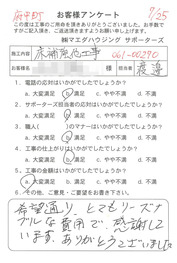 府中町 お客様アンケート 7/25
この度は工事のご用命を頂きありがとうございました。お手数で
すがご記入頂き、ご返送頂きますようお願い申し上げます。
㈱マエダハウジング サポーターズ
施工内容 床補強他工事 061-00290
担当者 渡邉
1. 電話の対応はいかがでしたでしょうか?
a. 大変満足 b. 満足 c. やや不満 d. 不満
2. サポーターズ担当者の対応はいかがでしたでしょうか?
a. 大変満足 b. 満足 c. やや不満 d. 不満
3. 職人( )のマナーはいかがでしたでしょうか?
a. 大変満足 b. 満足 c. やや不満 d. 不満
4. 工事の仕上がりはいかがでしたでしょうか?
a. 大変満足 b. 満足 c. やや不満 d. 不満
5. 工事の金額はいかがでしたでしょうか?
a. 大変満足 b. 満足 c. やや不満 d. 不満
6. その他、ご意見・ご要望などお書き下さい。
希望通り、とてもリーズナ
ブルな費用で、感謝して
います。ありがとうございました